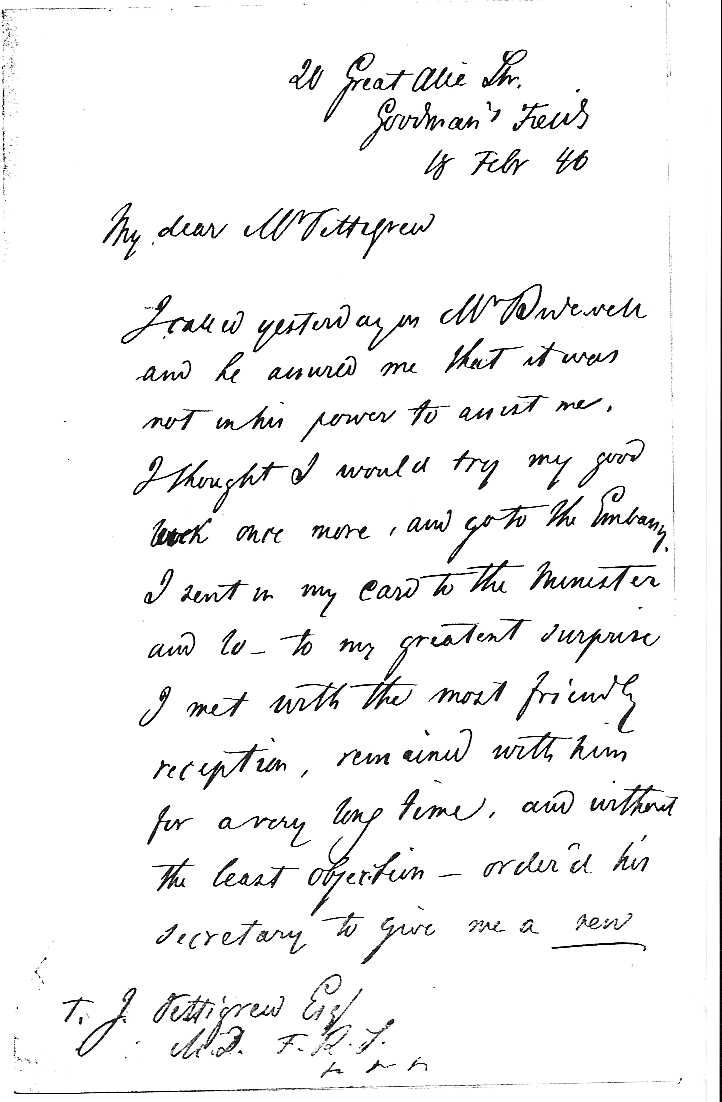 20 Great Alie Str.
Goodman's Fields
18 Febr 40
My dear Mr Pettigrew
I called yesterday on Mr
and he assured me that it was
not in his power to assist me.
I thought I would try my good
luck once more, and go to the Embassy.
I sent in my card to the Minister
and lo – to my greatest surprise
I met with the most friendly
reception, remained with him
for a very long time, and without
the least objection – order'd his
secretary to give me a new
T. J. Pettigrew Esq
M.D. F.R.S.